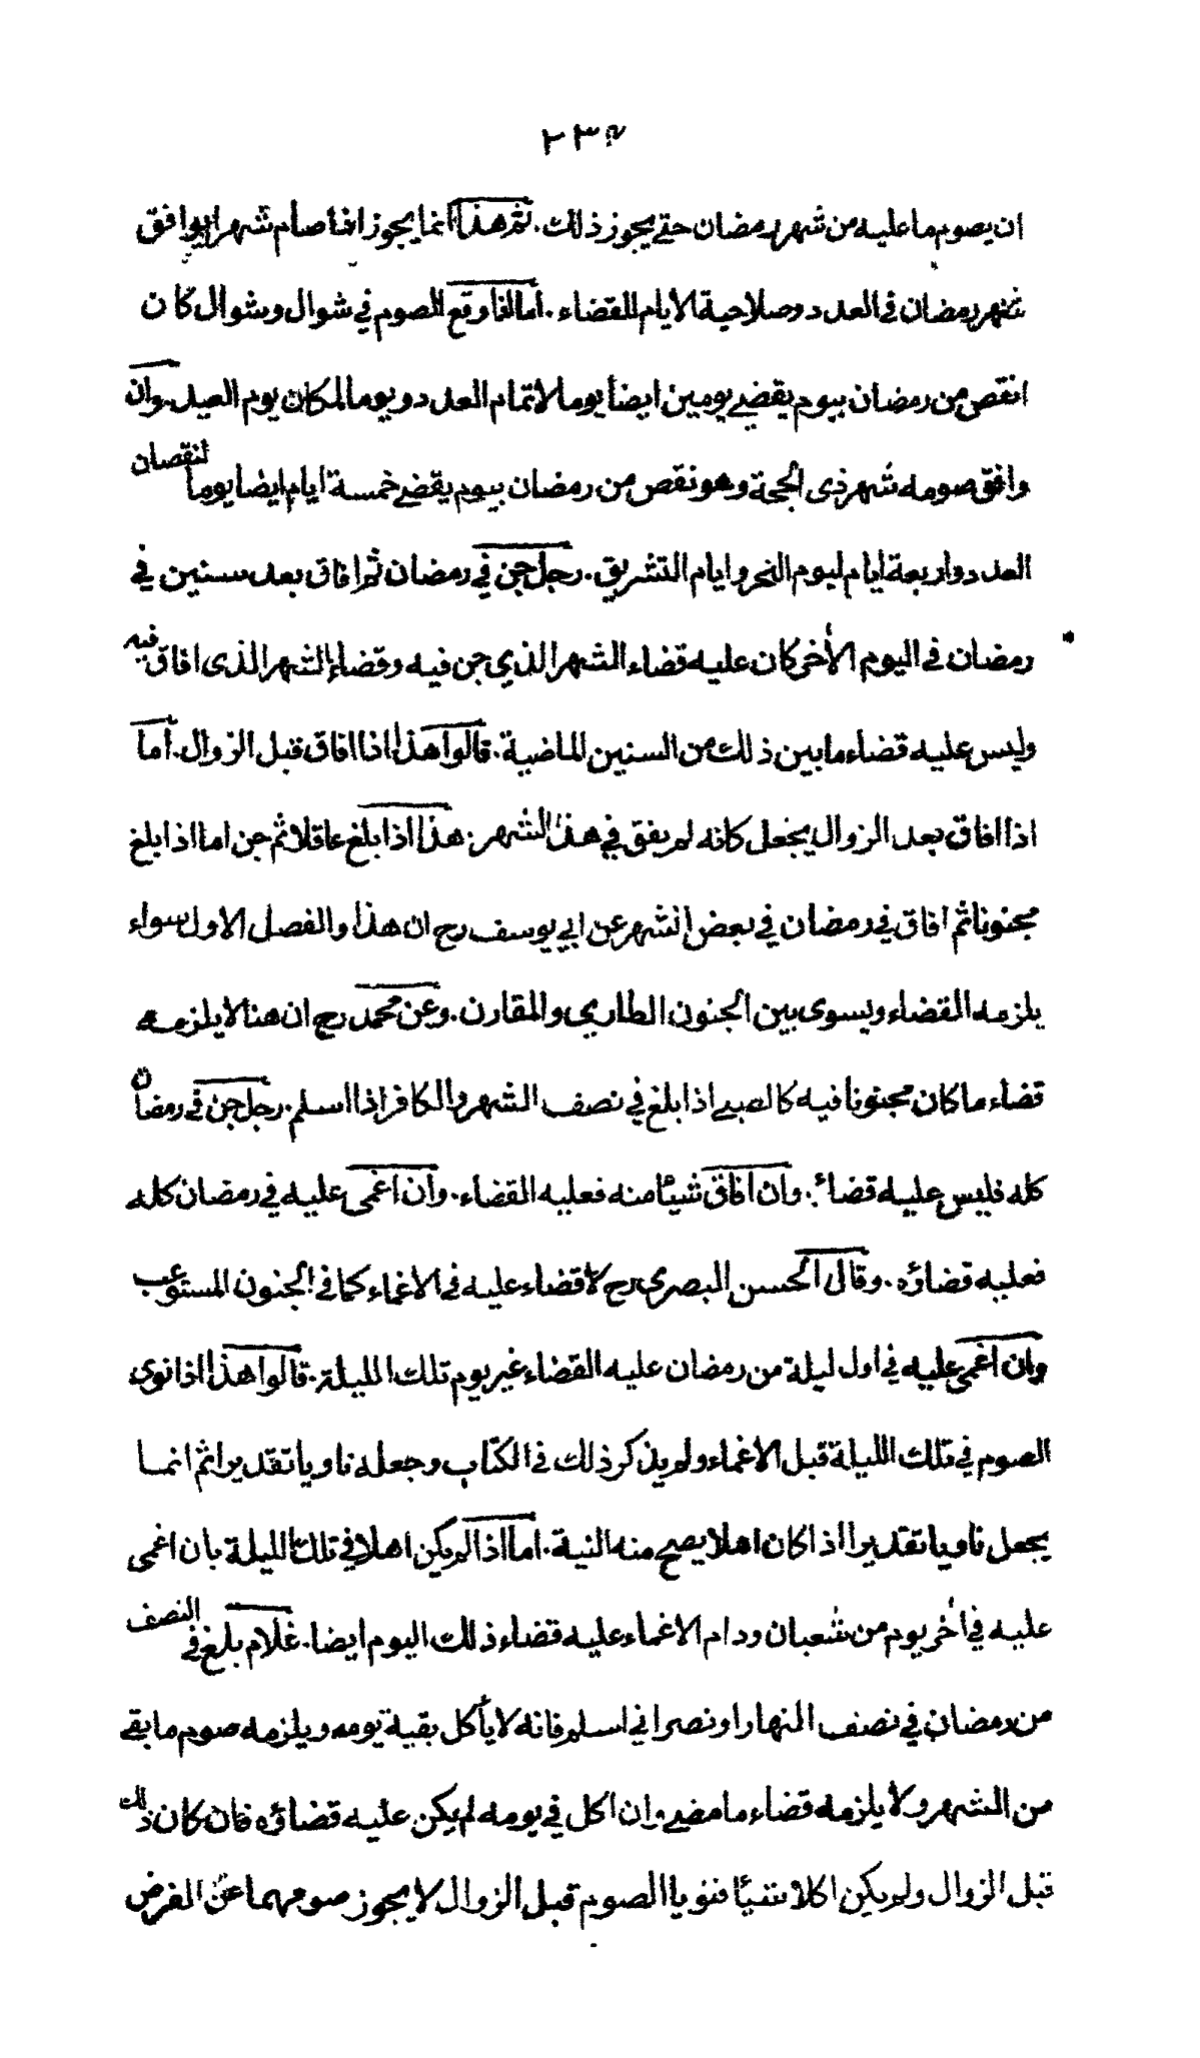 ان يصوم ما عليه من شهر رمضان حتى يجوز ذلك . ثم هذا انما يجوز اذا صام شهرا يوافق
شهر رمضان فى العدد وصلاحية الايام للقضاء . اما اذا وقع الصوم في شوال وشوال كان
انقص من رمضان بيوم يقضي يومين ايضا يوما لاتمام العدد ويوما لمكان يوم العيد . وان
وافق صومه شهر ذى الحجة وهو نقص من رمضان بيوم يقضي خمسة ايام ايضا يوما لنقصان
العدد واربعة ايام ليوم النحر وايام التشريق . رجل جن في رمضان ثم افاق بعد سنين في
رمضان فى اليوم الأخر كان عليه قضاء الشهر الذي جن فيه وقضاء الشهر الذى افاق فيه
وليس عليه قضاء ما بين ذلك من السنين الماضية . قالوا هذا اذا افاق قبل الزوال . اما
اذا افاق بعد الزوال يجعل كانه لم يفق في هذا الشهر . هذا اذا بلغ عاقلا ثم جن اما اذا بلغ
مجنونا ثم افاق في رمضان في بعض الشهر عن ابي يوسف رح ان هذا والفصل الاول سواء
يلزمه القضاء ويسوى بين الجنون الطاري والمقارن . وعن محمد رح ان هنا لا يلزمه
قضاء ما كان مجنونا فيه كالصبي اذا بلغ في نصف الشهر والكافر اذا اسلم . رجل جن في رمضان
كله فليس عليه قضاء . وان افاق شيئا منه فعليه القضاء . وان اغمى عليه في رمضان كله
فعليه قضاؤه . وقال الحسن البصري رح لا قضاء عليه فى الاغماء كما فى الجنون المستوعب
وان اغمى عليه في اول ليلة من رمضان عليه القضاء غير يوم تلك الليلة . قالوا هذا اذا نوى
الصوم في تلك الليلة قبل الاغماء ولم يذكر ذلك فى الكتاب وجعله ناويا تقديرا ثم انما
يجعل ناويا تقديرا اذا كان اهلا يصح منه النية . اما اذا لم يكن اهلا في تلك الليلة بان اغمى
عليه في أخر يوم من شعبان ودام الاغماء عليه قضاء ذلك اليوم ايضا . غلام بلغ في النصف
من رمضان في نصف النهار او نصراني اسلم فانه لا يأكل بقية يومه ويلزمه صوم ما بقي
من الشهر ولا يلزمه قضاء ما مضى وان اكل في يومه لم يكن عليه قضاؤه فان كان ذلك
قبل الزوال ولم يكن اكلا شيئا فنويا الصوم قبل الزوال لا يجوز صومهما عن الفرض